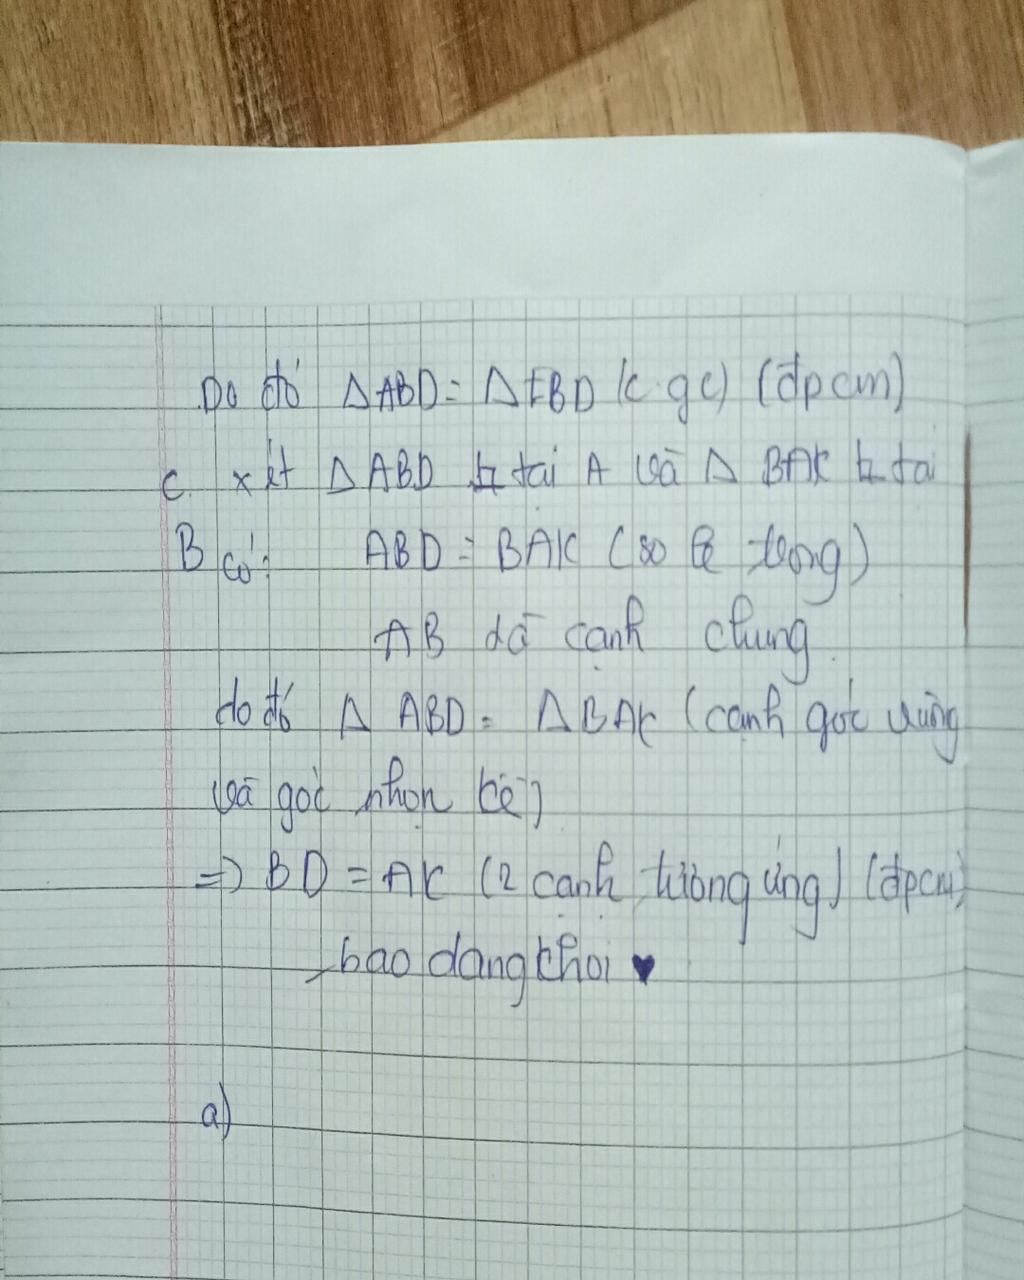 Do đó ΔABD = ΔEBD (c.g.c) (đpcm)
c. xét ΔABD ⊥ tại A và Δ BAK ⊥ tại
B có: ABD = BAK (so le trong)
AB là cạnh chung.
do đó Δ ABD = ΔBAK (cạnh góc vuông
và góc nhọn kề)
=> BD = AK (2 cạnh tương ứng) (đpcm)
bao dang khoi ♥
a)